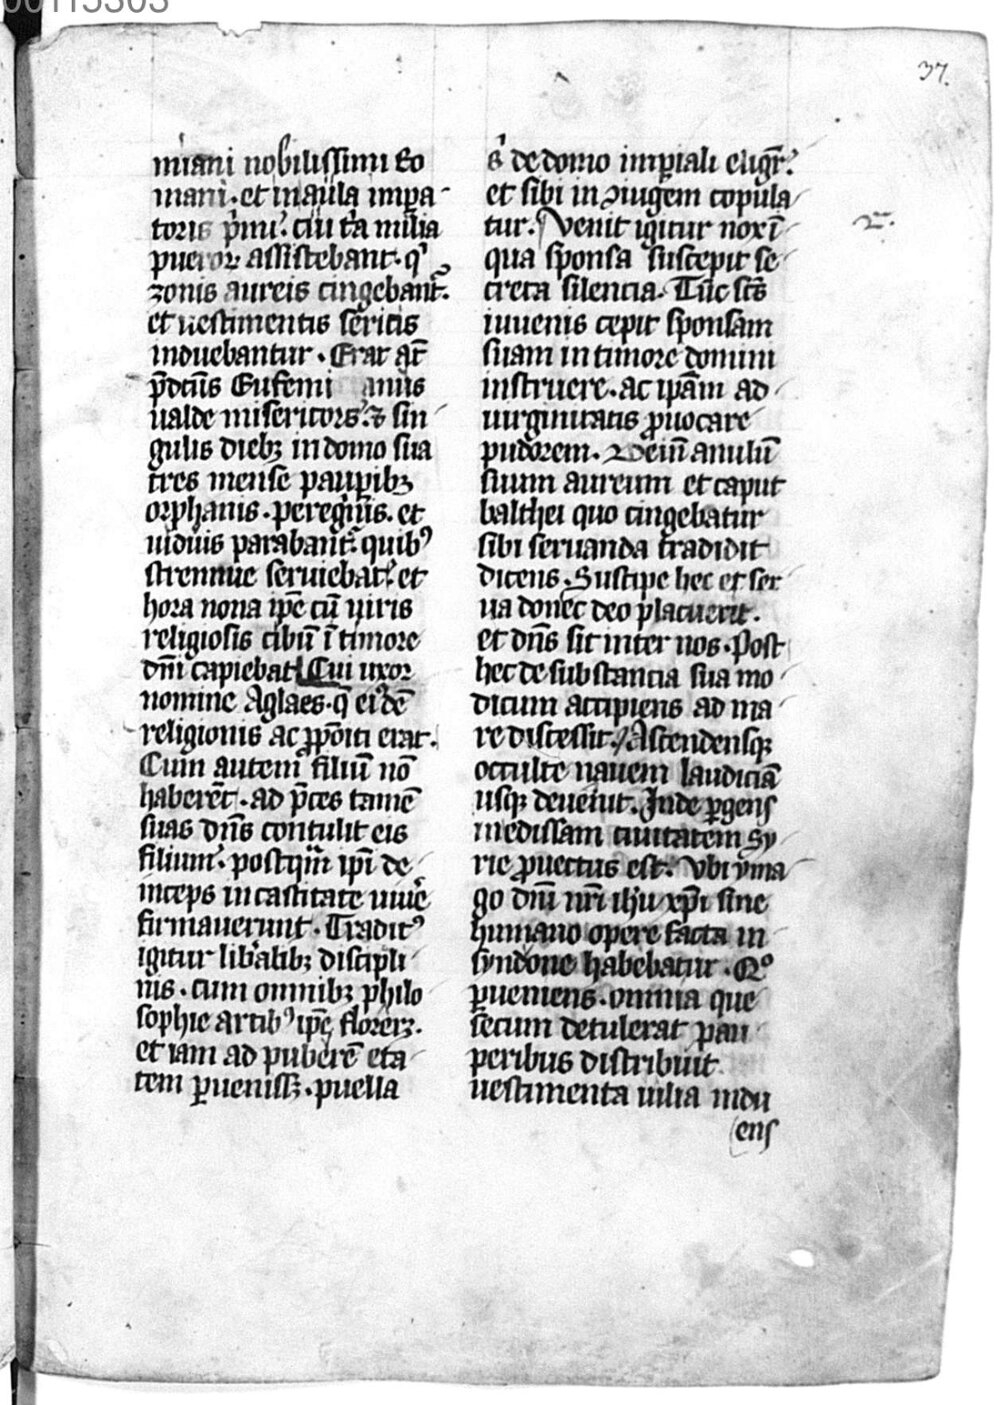 00115303
37
miani nobilissimi Ro
mani. et in aula impa
toris p̄mi. cui t̄a milia
pueror assistebant. qͥ
zonis aureis cingebant᷑.
et uestimentis sericis
induebantur. Erat at̄
p̄dc̄us Eufemi anus
ualde misericors. ⁊ sin
gulis diebꝫ in domo sua
tres mense pauꝑibꝫ
orphanis. peregͥnis. et
uiduis parabant᷑. quibꝰ
strennue seruiebat. et
hora nona ip̄e cū uiris
religiosis cibū ī timore
dn̄i capiebat. Cui uxor
nomine Aglaes. q̄ eiꝰdē
religionis ac ꝓpōiti erat.
Cum autem filiū nō
haberēt. ad p̄ces tamē
suas dn̄s contulit eis
filium. postqͣm ipī de
inceps in castitate uiuē
firmauerunt. Traditꝰ
igitur lib̄alibꝫ discipli
nis. cum omnibꝫ philo
sophie artibꝰ ip̄e floreꝫ.
et iam ad puberē eta
tem ꝑuenissꝫ. puella
ei de domo imꝑiali eligr̄.
et sibi in ꝯiugem copula
tur. Venit igitur nox ī
qua sponsa suscepit se
creta silencia. Tūc sc̄s
iuuenis cepit sponsam
suam in timore domini
instruere. ac ip̄am ad
uirginitatis ꝓuocare
pudorem. Dein̄ anulū
suum aureum et caput
balthei quo cingebatur
sibi seruanda tradidit
dicens. Suscipe hec et ser
ua donec deo placuerit.
et dn̄s sit inter nos. Post
hec de substancia sua mo
dicum accipiens ad ma
re discessit. Ascendensqꝫ
occulte nauem laudiciā
usqꝫ deuenit. Inde ꝑgens
in edissam ciuitatem sy
rie ꝓuectus est. Vbi yma
go dn̄i nr̄i ih̄u xp̄i sine
humano opere facta in
syndone habebatur. Qͦ
ꝑueniens. omnia que
secum detulerat pau
peribus distribuit
uestimenta uilia indu
ens